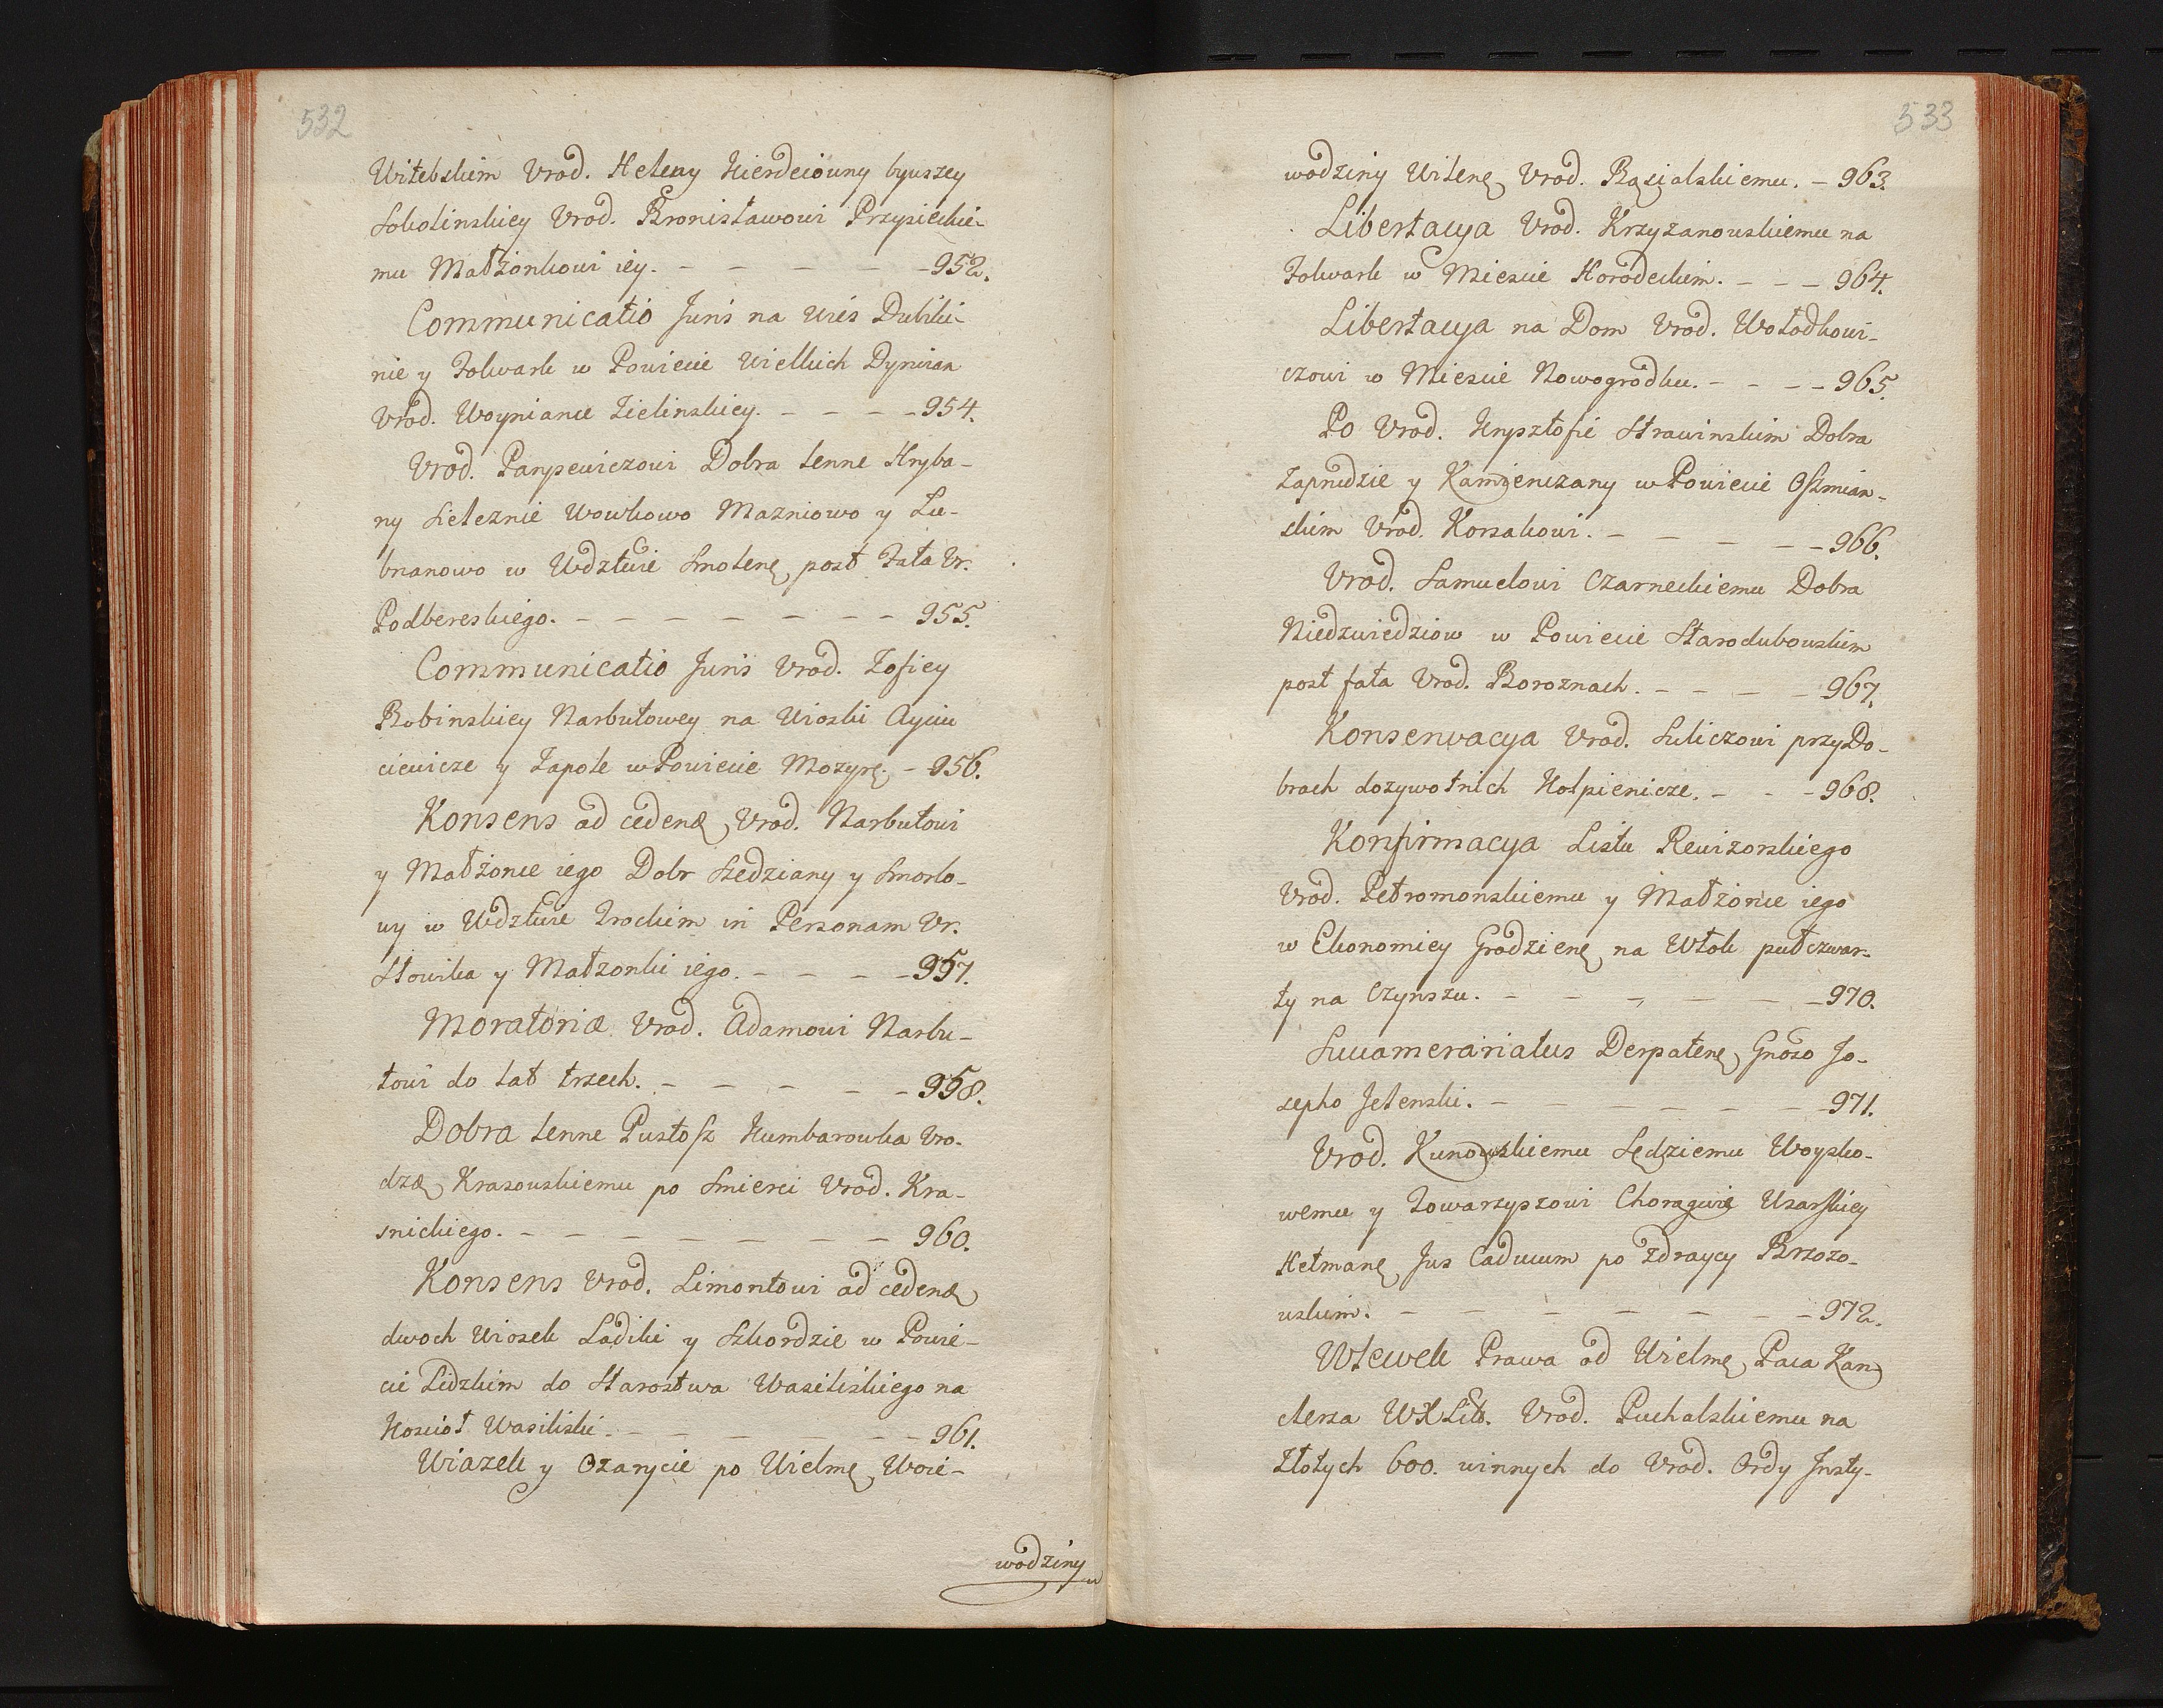 532
Witebskim Vrod. Heleny Kierdeiowny bywszey
Sokolinskiey Vrod. Bronisławowi Przysieckie-
mu Małżonkowi iey. - - - - - 952.
Communicatio Juris na Wieś
nie y Folwark w Powiecie Wielkich Dynian
Vrod. Woyniance Zielinskiey. - - - - 954.
Vrod. Parysewiczowi Dobra lenne Hryba-
ny Sieleznie Wowkowo Mazniowo y Lu-
bnanowo w Wdztwie Smolenę post Fata Vr.
Podbereskiego. - - - - - - - 955.
Communicatio Juris Vrod. Zofiey
Robinskiey Narbutowey na Wioski Ayciu
ciewicze y Zapole w Powiecie Mozyrę. - 956.
Konsens ad cedenę Vrod. Narbutowi
y Małżonce iego Dobr Szedziany y Smorlo-
wy w Wdztwie Trockim in Personam Vr.
Słowika y Małzonki iego. - - - - 957.
Moratoriæ Vrod. Adamowi Narbu-
towi do lat trzech. - - - - - 958.
Dobra lenne Pustosz Kumbarowka Vro-
dzę Krasowskiemu po Smierci Vrod. Kra-
snickiego. - - - - - - - 960.
Konsens Vrod. Limontowi ad cedenę
dwoch Wiosek Ladiki y Szkordzie w Powie-
cie Lidzkim do Starostwa Wasiliskiego na
Kosciół Wasiliski. - - - - - - 961.
Wiazek y Ozarycie po Wielmę Woie-
wodziny
533
wodziny Wilenę Vrod. Rącialskiemu. - 963.
Libertacya Vrod. Krzyzanowskiemu na
Folwark w Miescie Horodeckim. - - - 964.
Libertacya na Dom Vrod. Wołodkowi-
czowi w Miescie Nowogrodku. - - - - 965.
Po Vrod. Krysztofie Strawinskim Dobra
Zaprudzie y Kamienczany w Powiecie Oszmian-
skim Vrod. Korsakowi. - - - - - 966.
Vrod. Samuelowi Czarneckiemu Dobra
Niedzwiedziow w Powiecie Starodubowskim
post fata Vrod. Boroznach. - - - - 967.
Konserwacya Vrod. Suliczowi przy Do-
brach dozywotnich Holpienicze. - - - 968.
Konfirmacya Listu Rewizorskiego
Vrod. Petromonskiemu y Małżonce iego
w Ekonomiey Grodzienę na Włok pułczwar-
ty na Czynszu. - - - - - - 970.
Succamerariatus Derpatenę Gnoso Jo-
sepho Jelenski. - - - - - - - 971.
Vrod. Kunowskiemu Sędziemu Woysko-
wemu y Towarzyszowi Choragwie Usarskiey
Hetmanę Jus Caducum po Zdraycy Brzozo-
wskim. - - - - - - - 972.
Wlewek Prawa od Wielmę Paca Kan-
clerza WXLit. Vrod. Puchalskiemu na
Złotych 600. winnych do Vrod. Ordy Insty-